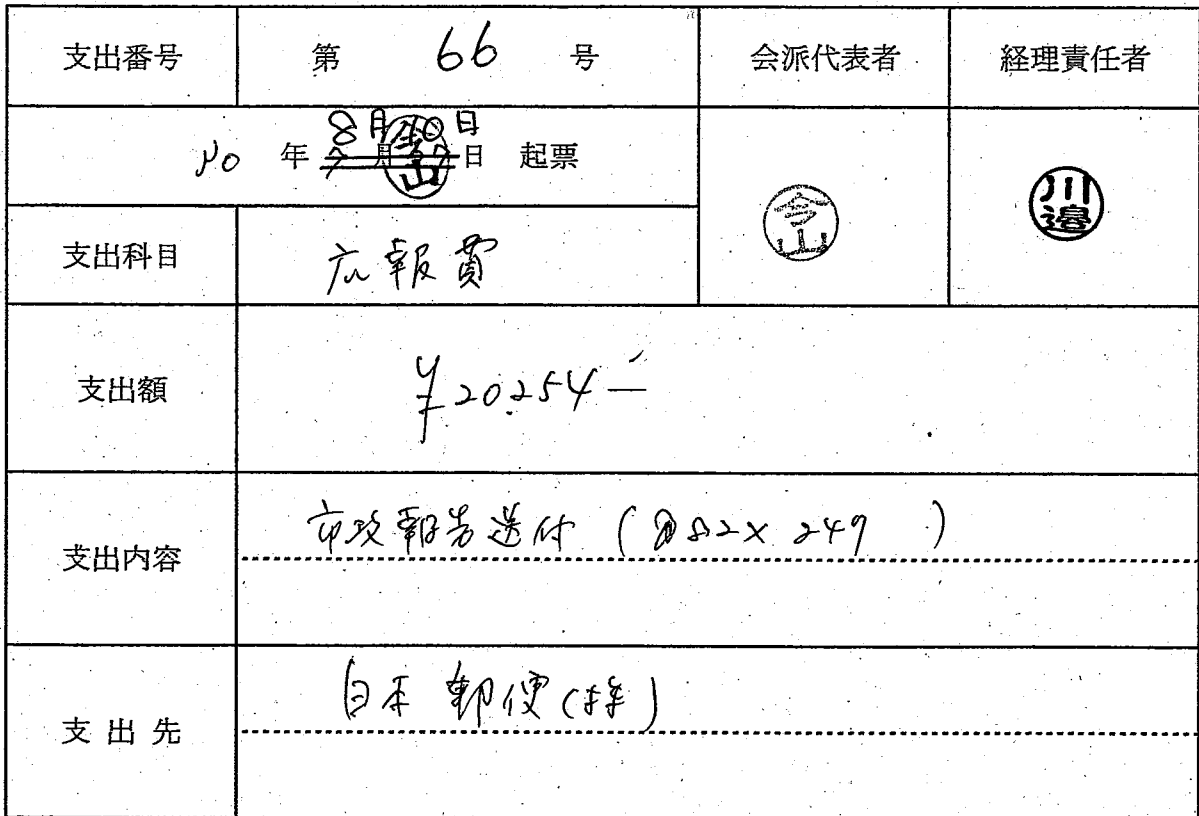 支出番号 第 66 号 会派代表者 経理責任者
8月10日
30 年 月 日 起票
今山
今山
川邊
支出科目 広報費
支出額 ¥20,254-
支出内容 市政報告送付 (@82×247 )
支出先 日本郵便(株)